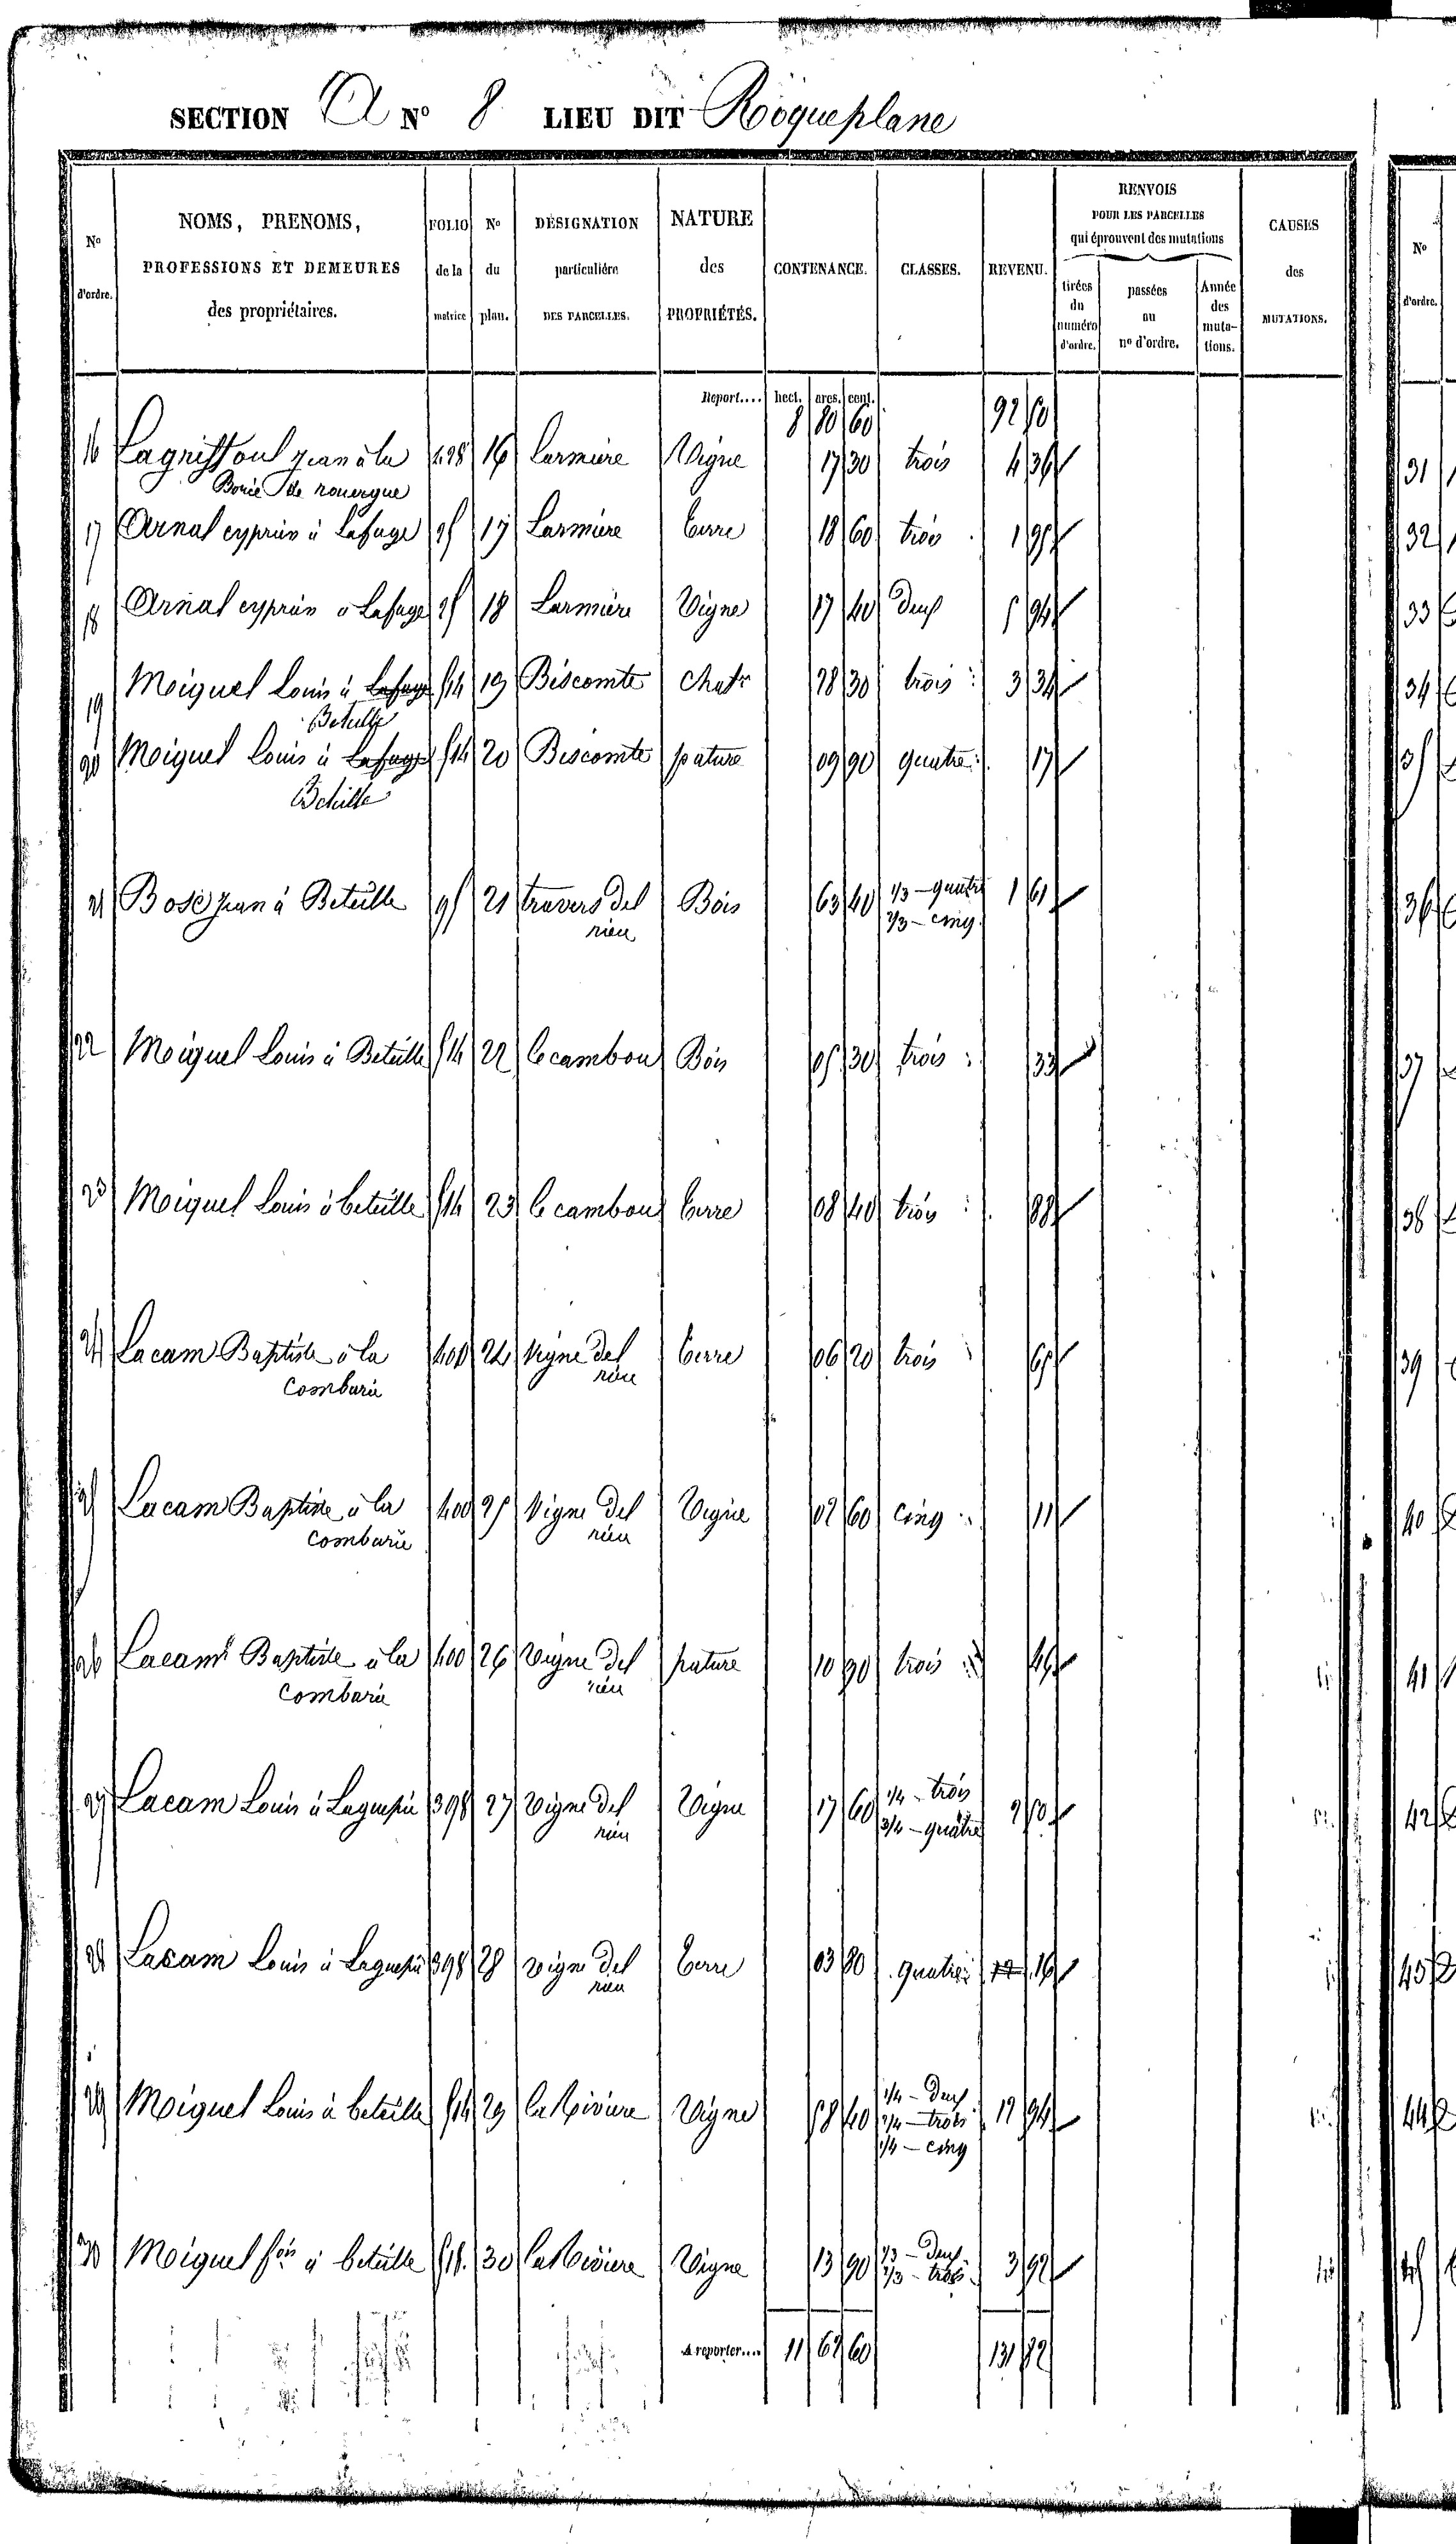 SECTION A N° 8 LIEU DIT Roqueplane
N° d'ordre. NOMS, PRENOMS, PROFESSIONS ET DEMEURES des propriétaires. FOLIO de la matrice N° du plan. DÉSIGNATION particulière DES PARCELLES. NATURE des PROPRIÉTÉS. CONTENANCE. CLASSES. REVENU. RENVOIS POUR LES PARCELLES qui éprouvent des mutations tirées du numéro d'ordre. passées au n° d'ordre. Année des mutations. CAUSES des MUTATIONS. N° d'ordre.
Report.... hect. ares. cent.
8 80 60 92 50
16 Lagriffoul jean à la 428 16 Larmière Vigne 17 30 trois 4 36
Borie de rouergue
17 Arnal cyprien à Lafage 25 17 Larmière terre 18 60 trois 1 95
18 Arnal cyprien à Lafage 25 18 Larmière Vigne 17 40 deux 5 94
19 Moiguel Louis à Lafage 514 19 Biscomte chatr 28 30 trois 3 34
Beteille
20 Moiguel Louis à Lafage 514 20 Biscomte pature 09 90 quatre 17
Beteille
21 Bosc jean à Beteille 95 21 travers del Bois 63 40 1/3 - quatre 1 61
rieu 2/3 - cinq
22 Moiguel Louis à Beteille 514 22 le cambou Bois 05 30 trois 33
23 Moiguel Louis à beteille 514 23 le cambou terre 08 40 trois 88
24 Lacam Baptiste à la 400 24 Vigne del terre 06 20 trois 65
Combarie rieu
25 Lacam Baptiste à la 400 25 Vigne del Vigne 02 60 cinq 11
Combarie rieu
26 Lacam Baptiste à la 400 26 Vigne del pature 10 90 trois 46
Combarie rieu
27 Lacam Louis à Laguepie 398 27 Vigne del Vigne 17 60 1/4 - trois 2 50
rieu 3/4 - quatre
28 Lacam Louis à Laguepie 398 28 vigne del terre 03 80 quatre 16
rieu
29 Moiguel Louis à beteille 514 29 la Rivière Vigne 58 40 1/4 - deux 12 94
2/4 - trois
1/4 - cinq
30 Moiguel fois à beteille 30 la Rivière Vigne 13 90 1/3 - deux 3 92
2/3 - trois
A reporter.... 11 62 60 131 82
31
32
33
34
35
36
37
38
39
40
41
42
43
44
45